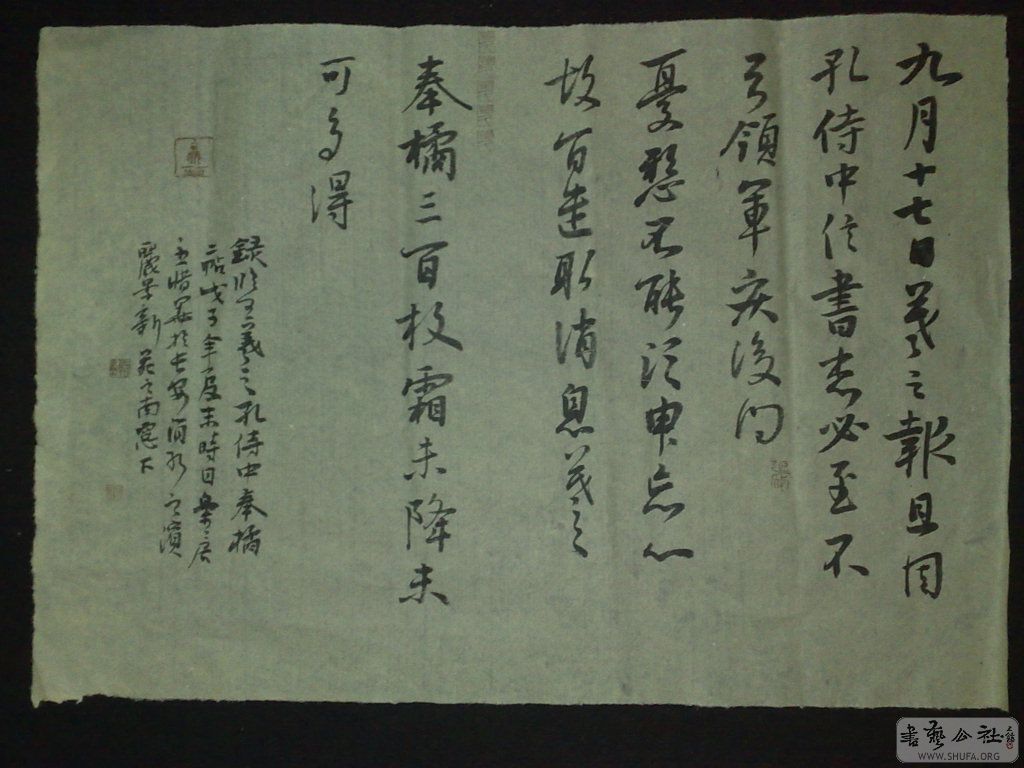 九月十七日羲之報且因
孔侍中信書想必至不
知領軍疾後問
憂愁不能須申忘心
故旨遣取消息羲之
奉橘三百枚霜未降未
可多得
錄臨王羲之孔侍中奉橘
二帖戊子年夏末時日桑宿
主悟 於長安 水之濱
麗景新苑之南窗下
書藝公社
WWW.SHUFA.ORG